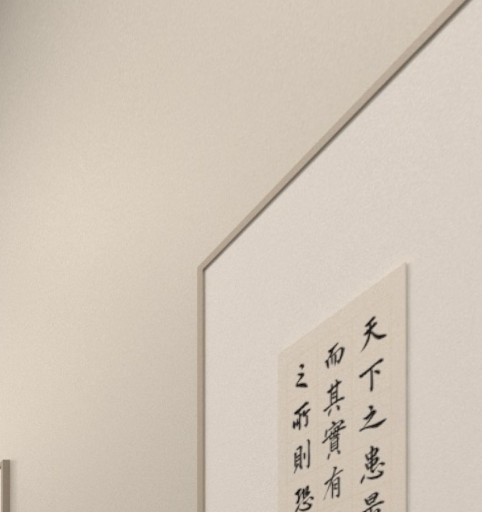 天下之患最
而其實有
之所則恐